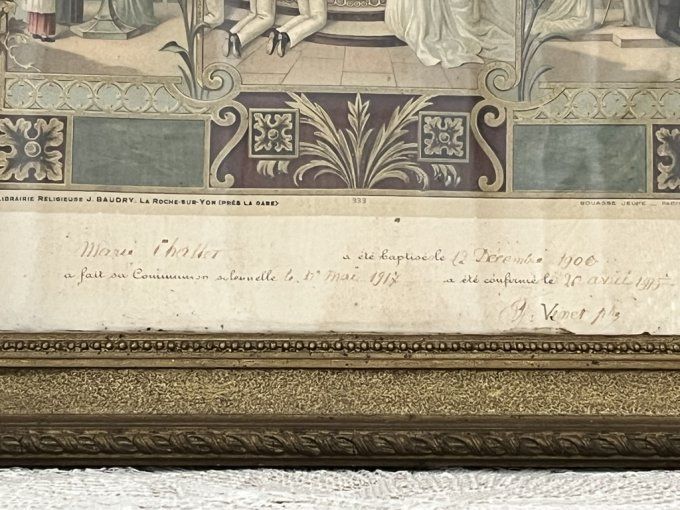 LIBRAIRIE RELIGIEUSE J. BAUDRY. LA ROCHE-SUR-YON (PRÈS LA GARE) 333 BOUASSE JEUNE _ PARIS
Marie a été baptisé le 12 Décembre 1906
a fait sa Communion solennelle le 17 Mai 1917 a été confirmé le 20 avril
Vinet